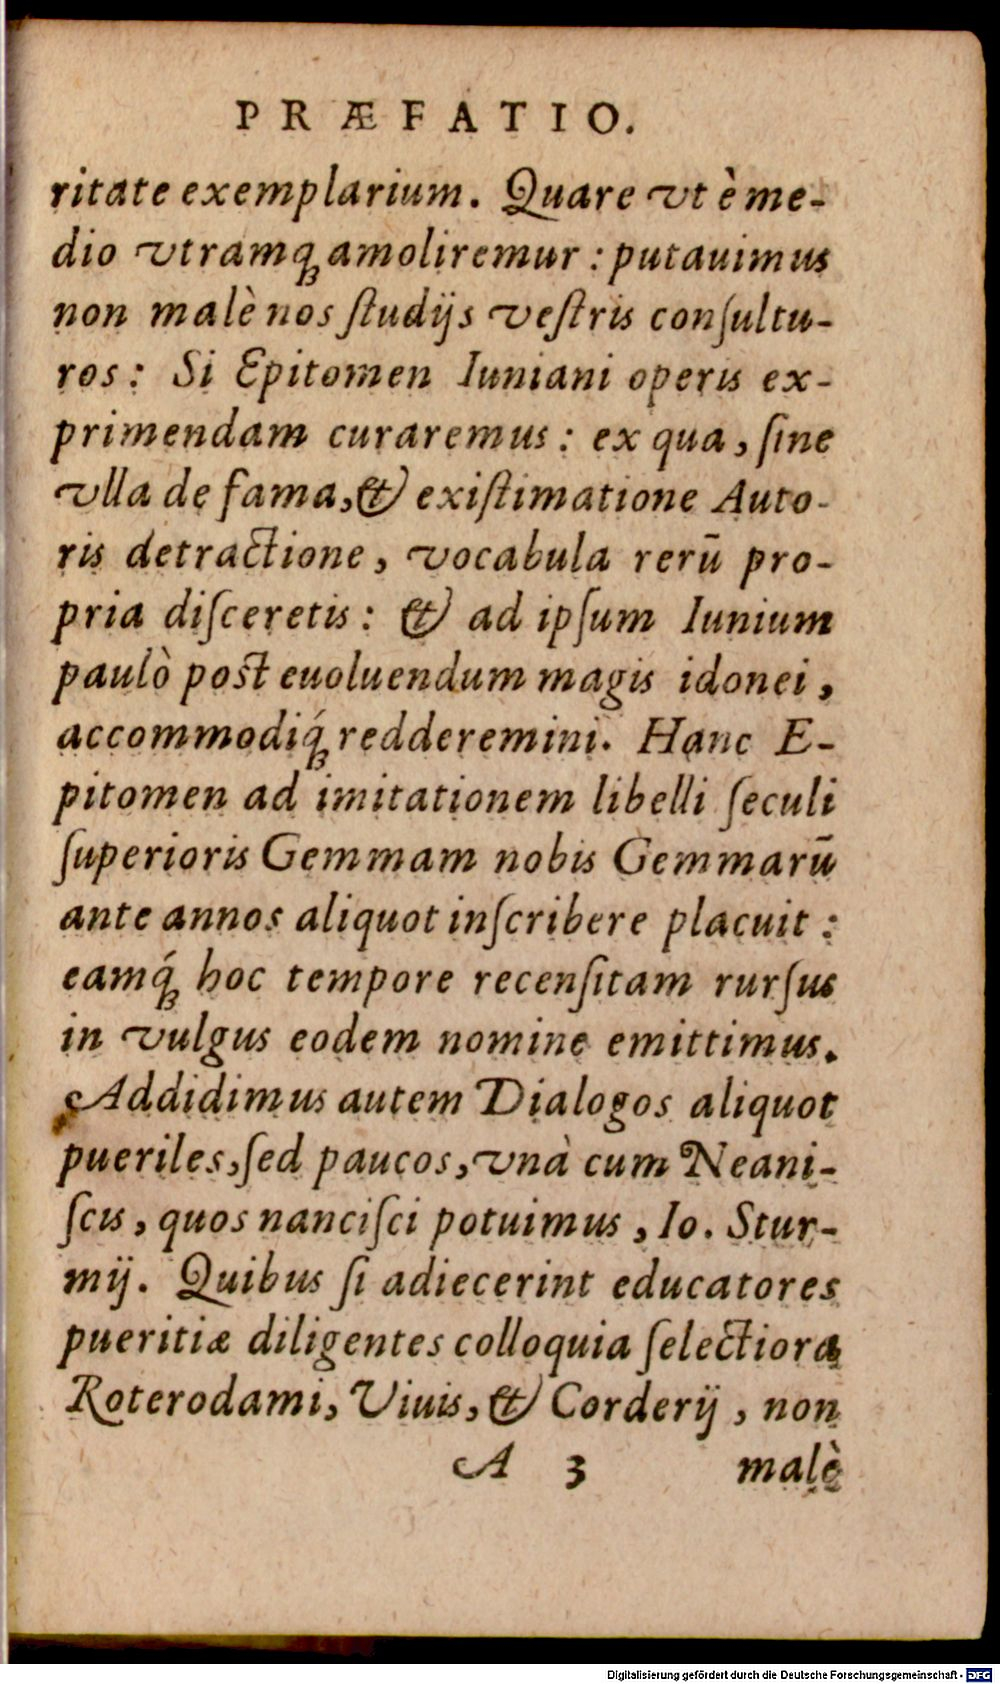 PRÆFATIO.
ritate exemplarium. Quare vt è me-
dio vtramq́ꝫ amoliremur : putauimus
non malè nos ſtudijs veſtris conſultu-
ros: Si Epitomen Iuniani operis ex-
primendam curaremus: ex qua, ſine
vlla de fama, & exiſtimatione Auto-
ris detractione, vocabula rerū pro-
pria diſceretis: & ad ipſum Iunium
paulò poſt euoluendum magis idonei,
accommodiq́ꝫ redderemini. Hanc E-
pitomen ad imitationem libelli ſeculi
ſuperioris Gemmam nobis Gemmarū
ante annos aliquot inſcribere placuit :
eamq́ꝫ hoc tempore recenſitam rurſus
in vulgus eodem nomine emittimus.
Addidimus autem Dialogos aliquot
pueriles, ſed paucos, vnà cum Neani-
ſcis, quos nanciſci potuimus, Io. Stur-
mij. Quibus ſi adiecerint educatores
pueritiæ diligentes colloquia ſelectiora
Roterodami, Viuis, & Corderij, non
A 3 malè
Digitalisierung gefördert durch die Deutsche Forschungsgemeinschaft - DFG